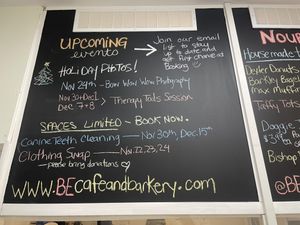 UPCOMING
events
Join our email
list to stay
up to date and
get first chance at
Booking
HOLIDAY PHOTOS!
Nov 24th - Bow Wow Wow Photography
Nov 30 + Dec 1
Dec 7 + 8 > Therapy Tails Session
SPACES LIMITED - BOOK NOW.
Canine Teeth Cleaning — Nov 30th, Dec. 15th
Clothing Swap — Nov. 22, 23, 24
— people bring donations
WWW.BEcafeandbarkery.com
NOUR
House made t
Dexter Donuts
Barkley Bage
max muffin
Taffy Tots
Doggie
Bishop
@BE